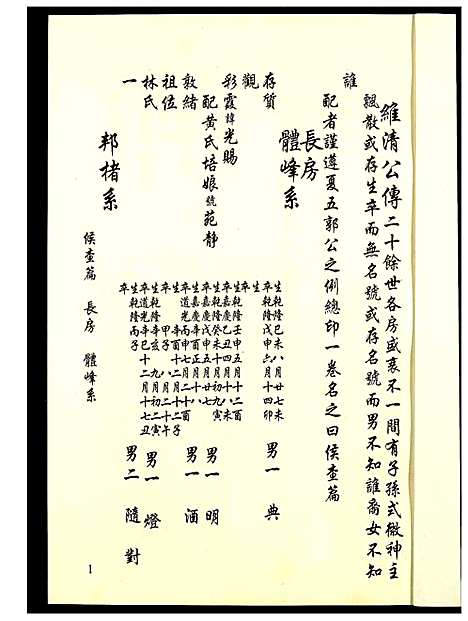 維清公傳二十餘世各房盛衰不一間有子孫式微神主
飄散或存生卒而無名號或存名號而男不知誰裔女不知
誰
配者謹遵夏五郭公之例總印一卷名之曰侯查篇
長房
體峰系
存質
生乾隆己未八月廿七未
卒乾隆戊申六月十四卯
男一 典
觀
生
卒嘉慶乙丑四月十八未
彩霞諱光賜
生乾隆癸未十月初九寅
卒嘉慶戊申五月廿七
男一 明
配黃氏培娘號苑靜
生乾隆壬申五月十二酉
敦緒
生嘉慶辛酉正月十八
卒道光丙申七月廿六酉
男一 酒
祖位
生 辛酉十二月十二子
卒 甲子 九月二十午
林氏
生乾隆辛亥 八月初二寅
卒道光辛巳十二月十七丑
男一 燈
一
生乾隆丙子
卒
男二 隨 對
邦楮系
侯查篇 長房 體峰系
1